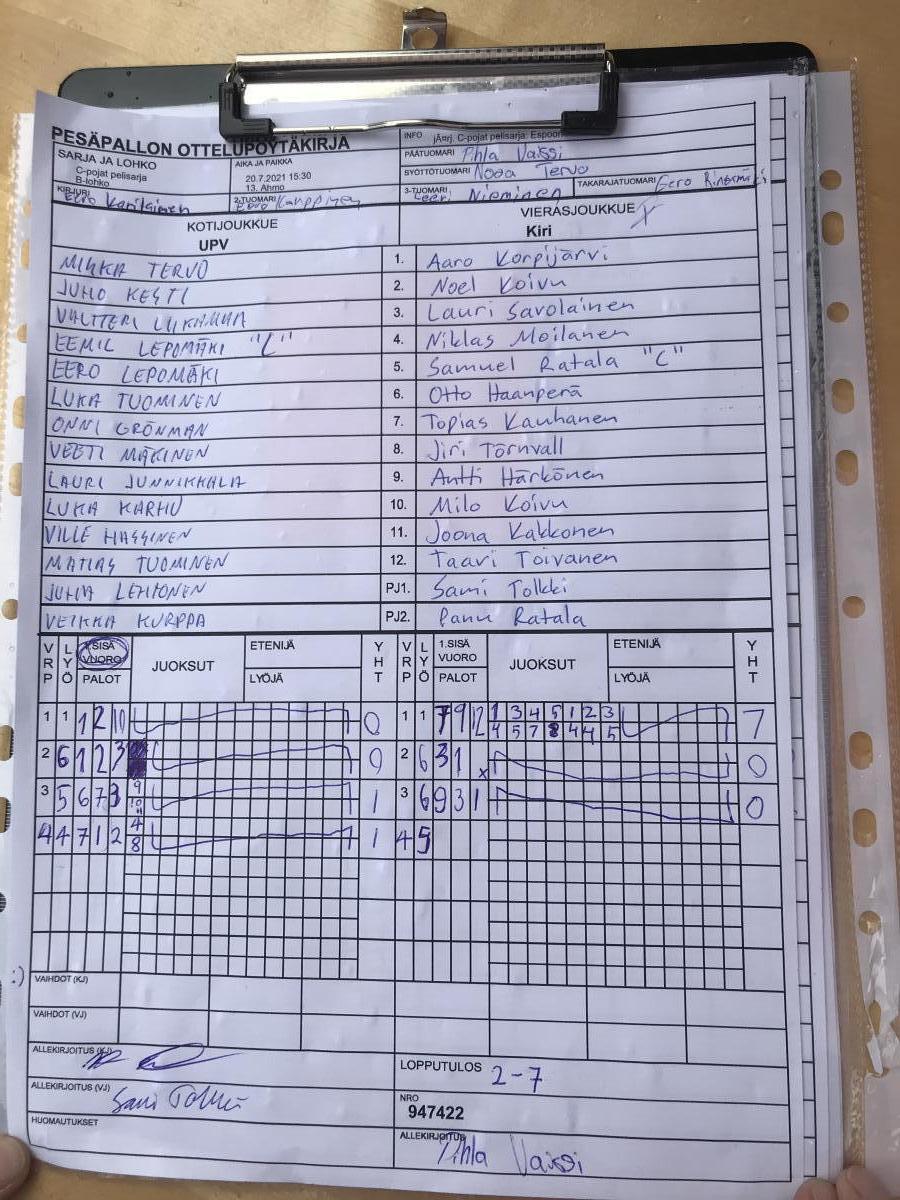 PESÄPALLON OTTELUPÖYTÄKIRJA
INFO jÃ¤rj. C-pojat pelisarja: Espoon
SARJA JA LOHKO
C-pojat pelisarja
B-lohko
AIKA JA PAIKKA
20.7.2021 15:30
13. Ahmo
PÄÄTUOMARI Pihla Vaissi
SYÖTTÖTUOMARI Nooa Tervo
KIRJURI Eero
2-TUOMARI Eero Karppinen
3-TUOMARI Leevi Nieminen
TAKARAJATUOMARI Eero
KOTIJOUKKUE
UPV
VIERASJOUKKUE X
Kiri
MIIKKA TERVO 1. Aaro Korpijärvi
JUHO KESTI 2. Noel Koivu
VALTTERI 3. Lauri Savolainen
EEMIL LEPOMÄKI "C" 4. Niklas Moilanen
EERO LEPOMÄKI 5. Samuel Ratala "C"
LUKA TUOMINEN 6. Otto Haanperä
ONNI GRÖNMAN 7. Topias Kauhanen
VEETI MÄKINEN 8. Jiri Törnvall
LAURI JUNNIKKALA 9. Antti Härkönen
LUKA KARHU 10. Milo Koivu
VILLE HASSINEN 11. Joona Kakkonen
MATIAS TUOMINEN 12. Taavi Toivanen
JUHA LEHTONEN PJ1. Sami Tolkki
VEIKKA KURPPA PJ2. Panu Ratala
VRP LYÖ 1.SISÄ VUORO PALOT JUOKSUT ETENIJÄ LYÖJÄ YHT VRP LYÖ 1.SISÄ VUORO PALOT JUOKSUT ETENIJÄ LYÖJÄ YHT
1 1 1 2 10 0 1 1 7 9 12 1 3 4 5 1 2 3 7
4 5 7 8 4 4 5
2 6 1 2 3 0 2 6 3 1 x 0
3 5 6 7 3 9 1 3 6 9 3 1 0
10
11
4 4 7 1 2 4 1 4 5
8
:)
VAIHDOT (KJ)
VAIHDOT (VJ)
ALLEKIRJOITUS (KJ)
LOPPUTULOS 2-7
ALLEKIRJOITUS (VJ) Sami Tolkki
NRO
947422
HUOMAUTUKSET
ALLEKIRJOITUS Pihla Vaissi